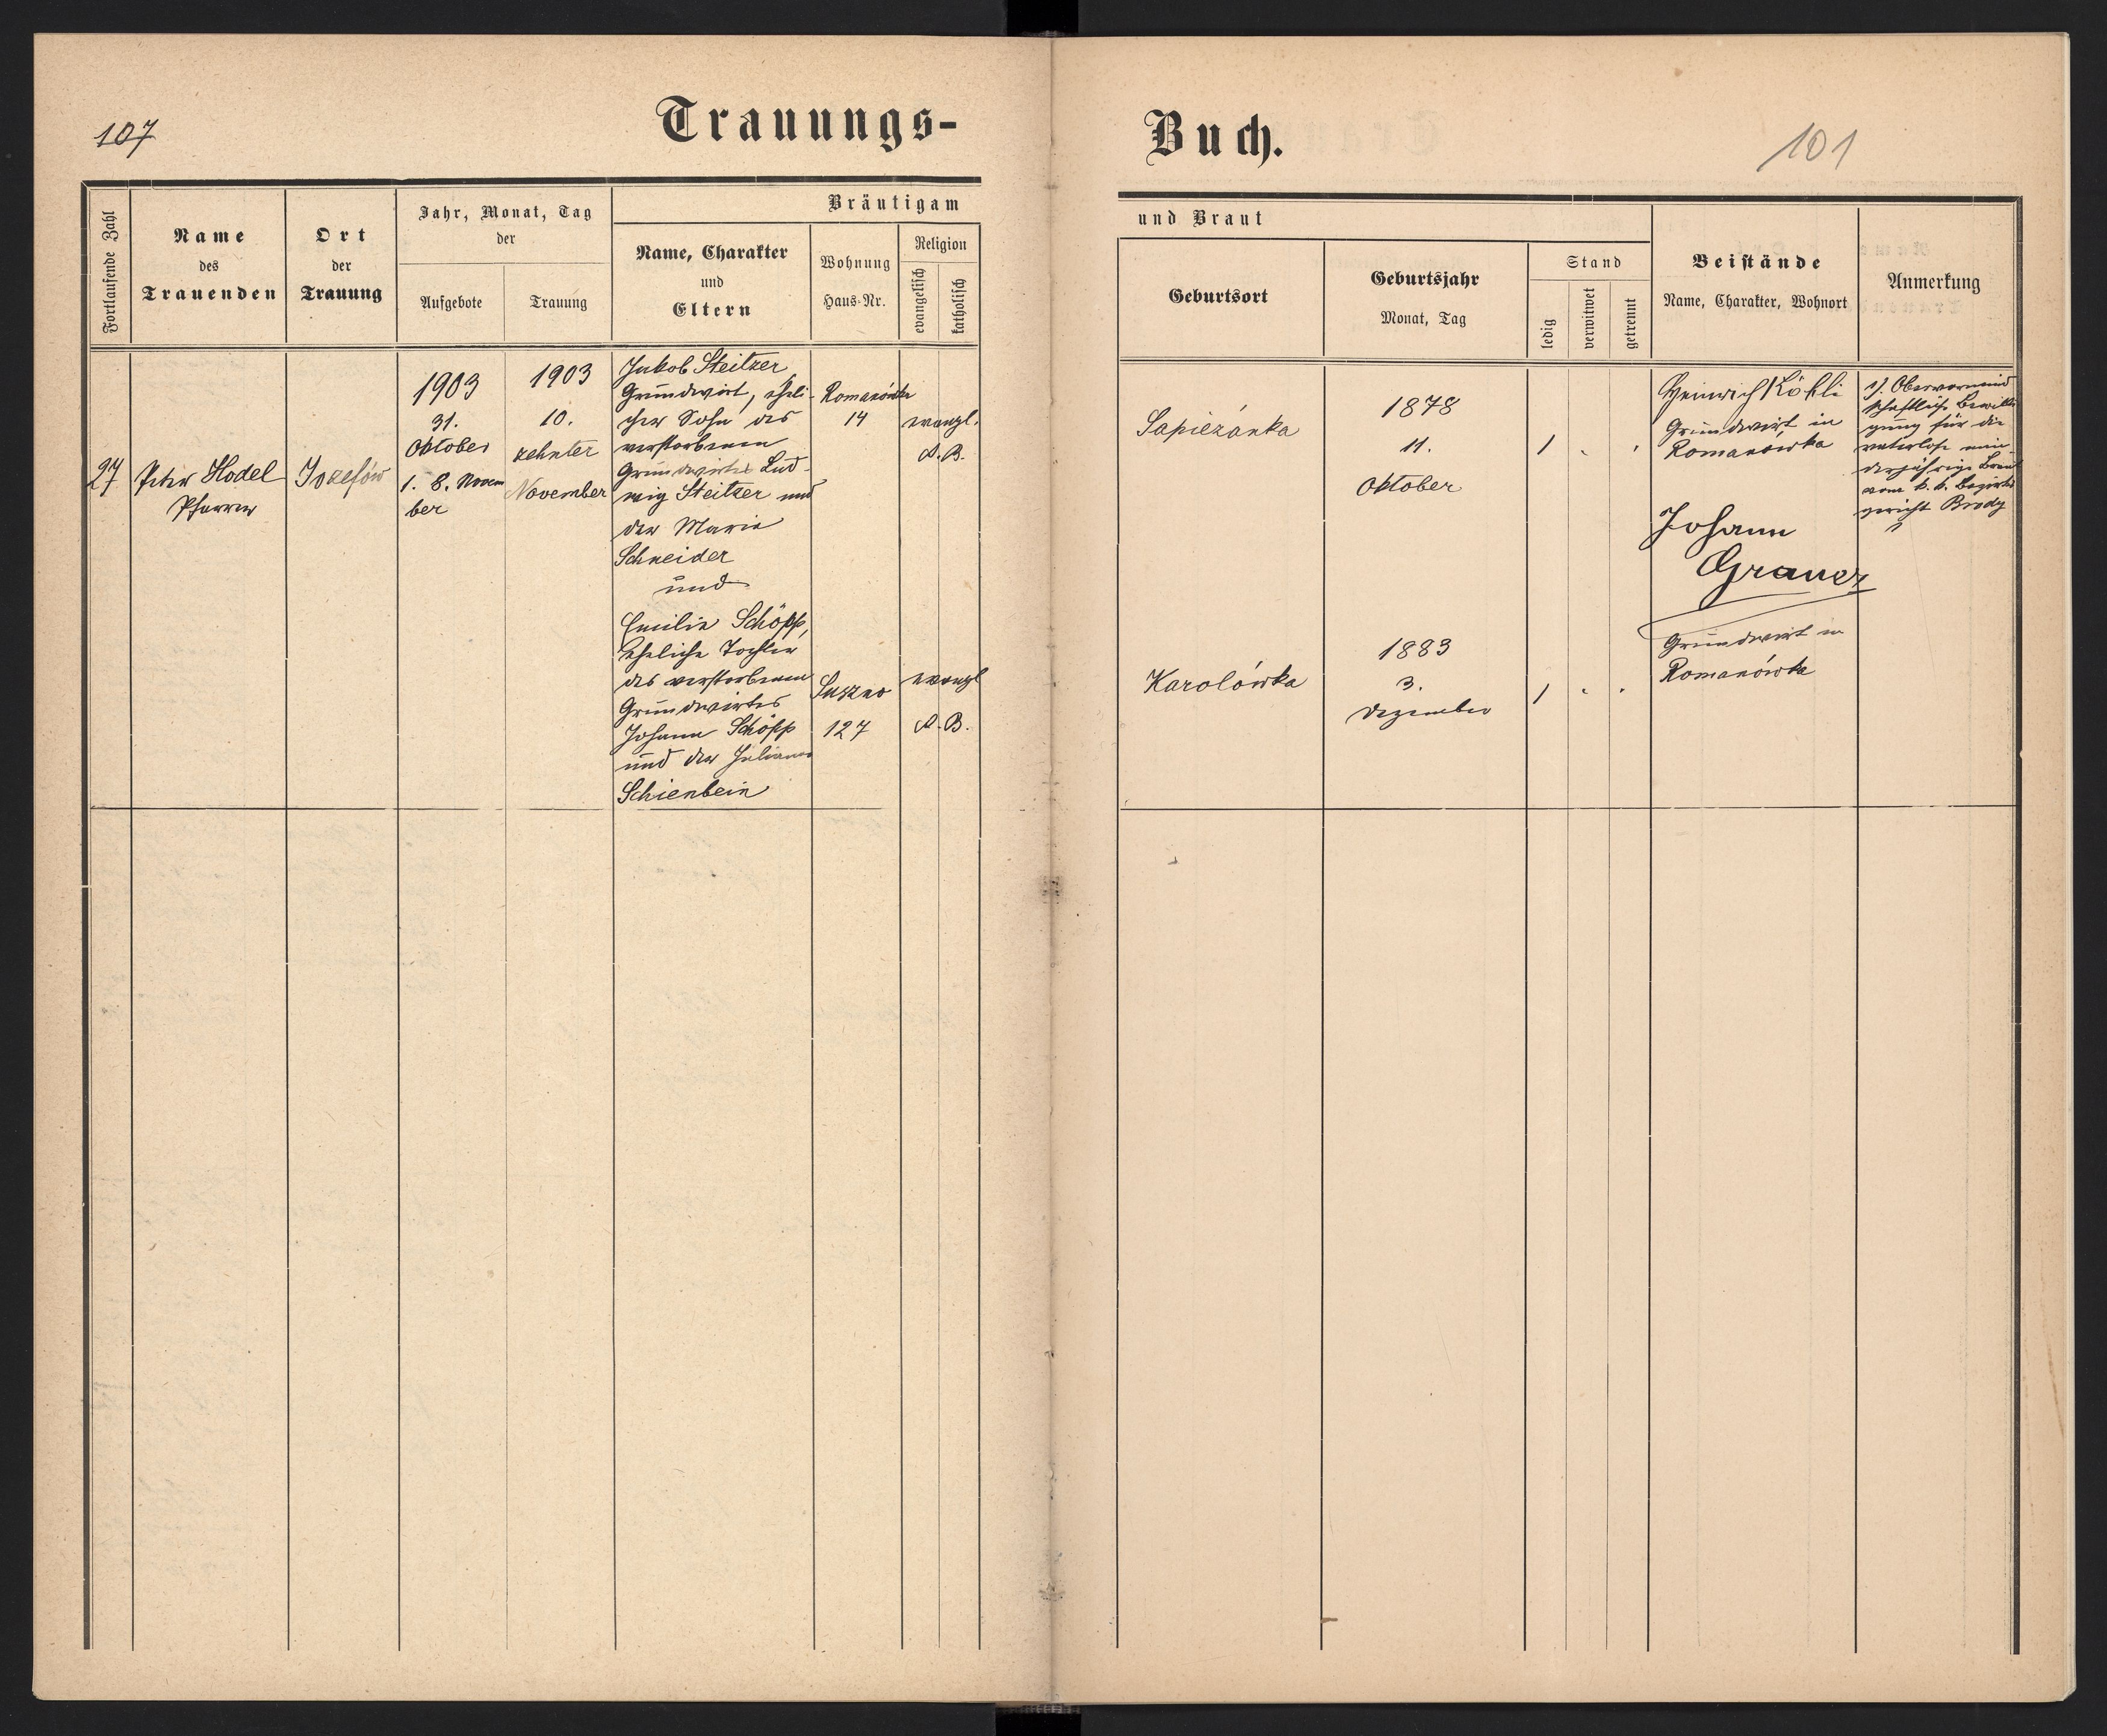 107
Trauungs-
Buch.
101
Fortlaufende Zahl
Name
des
Trauenden
Ort
der
Trauung
Jahr, Monat, Tag
der
Aufgebote
Trauung
Bräutigam
Name, Charakter
und
Eltern
Wohnung
Haus-Nr.
Religion
evangelisch
katholisch
und Braut
Geburtsort
Geburtsjahr
Monat, Tag
Stand
ledig
verwitwet
getrennt
Beistände
Name, Charakter, Wohnort
Anmerkung
27
Peter Hodel
Pfarrer
Jozefów
1903
31.
Oktober
1. 8. Novem
ber
1903
10.
zehnter
November
Jakob Steitzer,
Grundwirt, eheli-
cher Sohn des
verstorbenen
Grundwirtes Lud-
wig Steitzer und
der Marie
Schneider
und
Emilie Schöpp,
eheliche Tochter
des verstorbenen
Grundwirtes
Johann Schöpp
und der Juliana
Schienbein
Romanówka
14
evangl.
A. B.
Suszno
127
evangl
A. B.
Sapiezánka
1878
11.
Oktober
1
Karolówka
1883
3.
Dezember
1
Heinrich
Grundwirt in
Romanówka
Johann
Grauer
Grundwirt in
Romanówka
1). Obervormund
schaftliche Bewilli
gung für die
vaterlose min-
derjährige Braut
vom k. k. Bezirks
gericht Brody